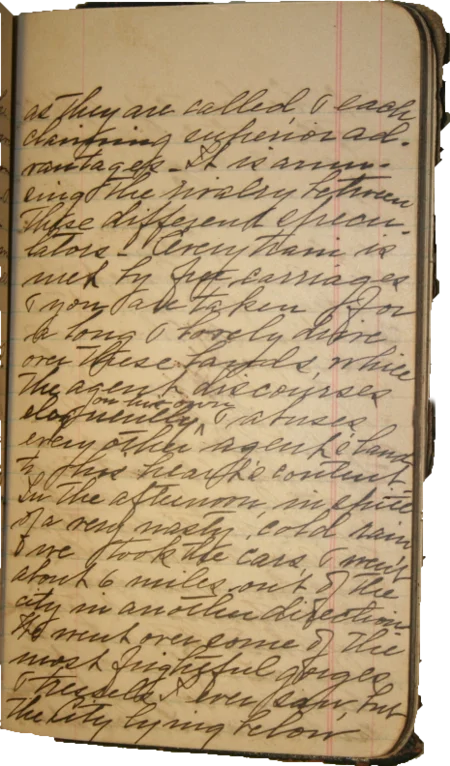 as they are called & each
claiming superior ad-
vantages - It is amu-
sing the rivalry between
these different specu-
lators - Every train is
met by free carriages
& you are taken for
a long & lovely drive
over these lands, while
the agent discourses
eloquently on his own & abuses
every other agent's land
to his heart's content.
In the afternoon in spite
of a very nasty, cold rain
we took the cars & went
about 6 miles out of the
city in another direction.
We went over some of the
most frightful gorges
& tressels I ever saw, but
the City lying below